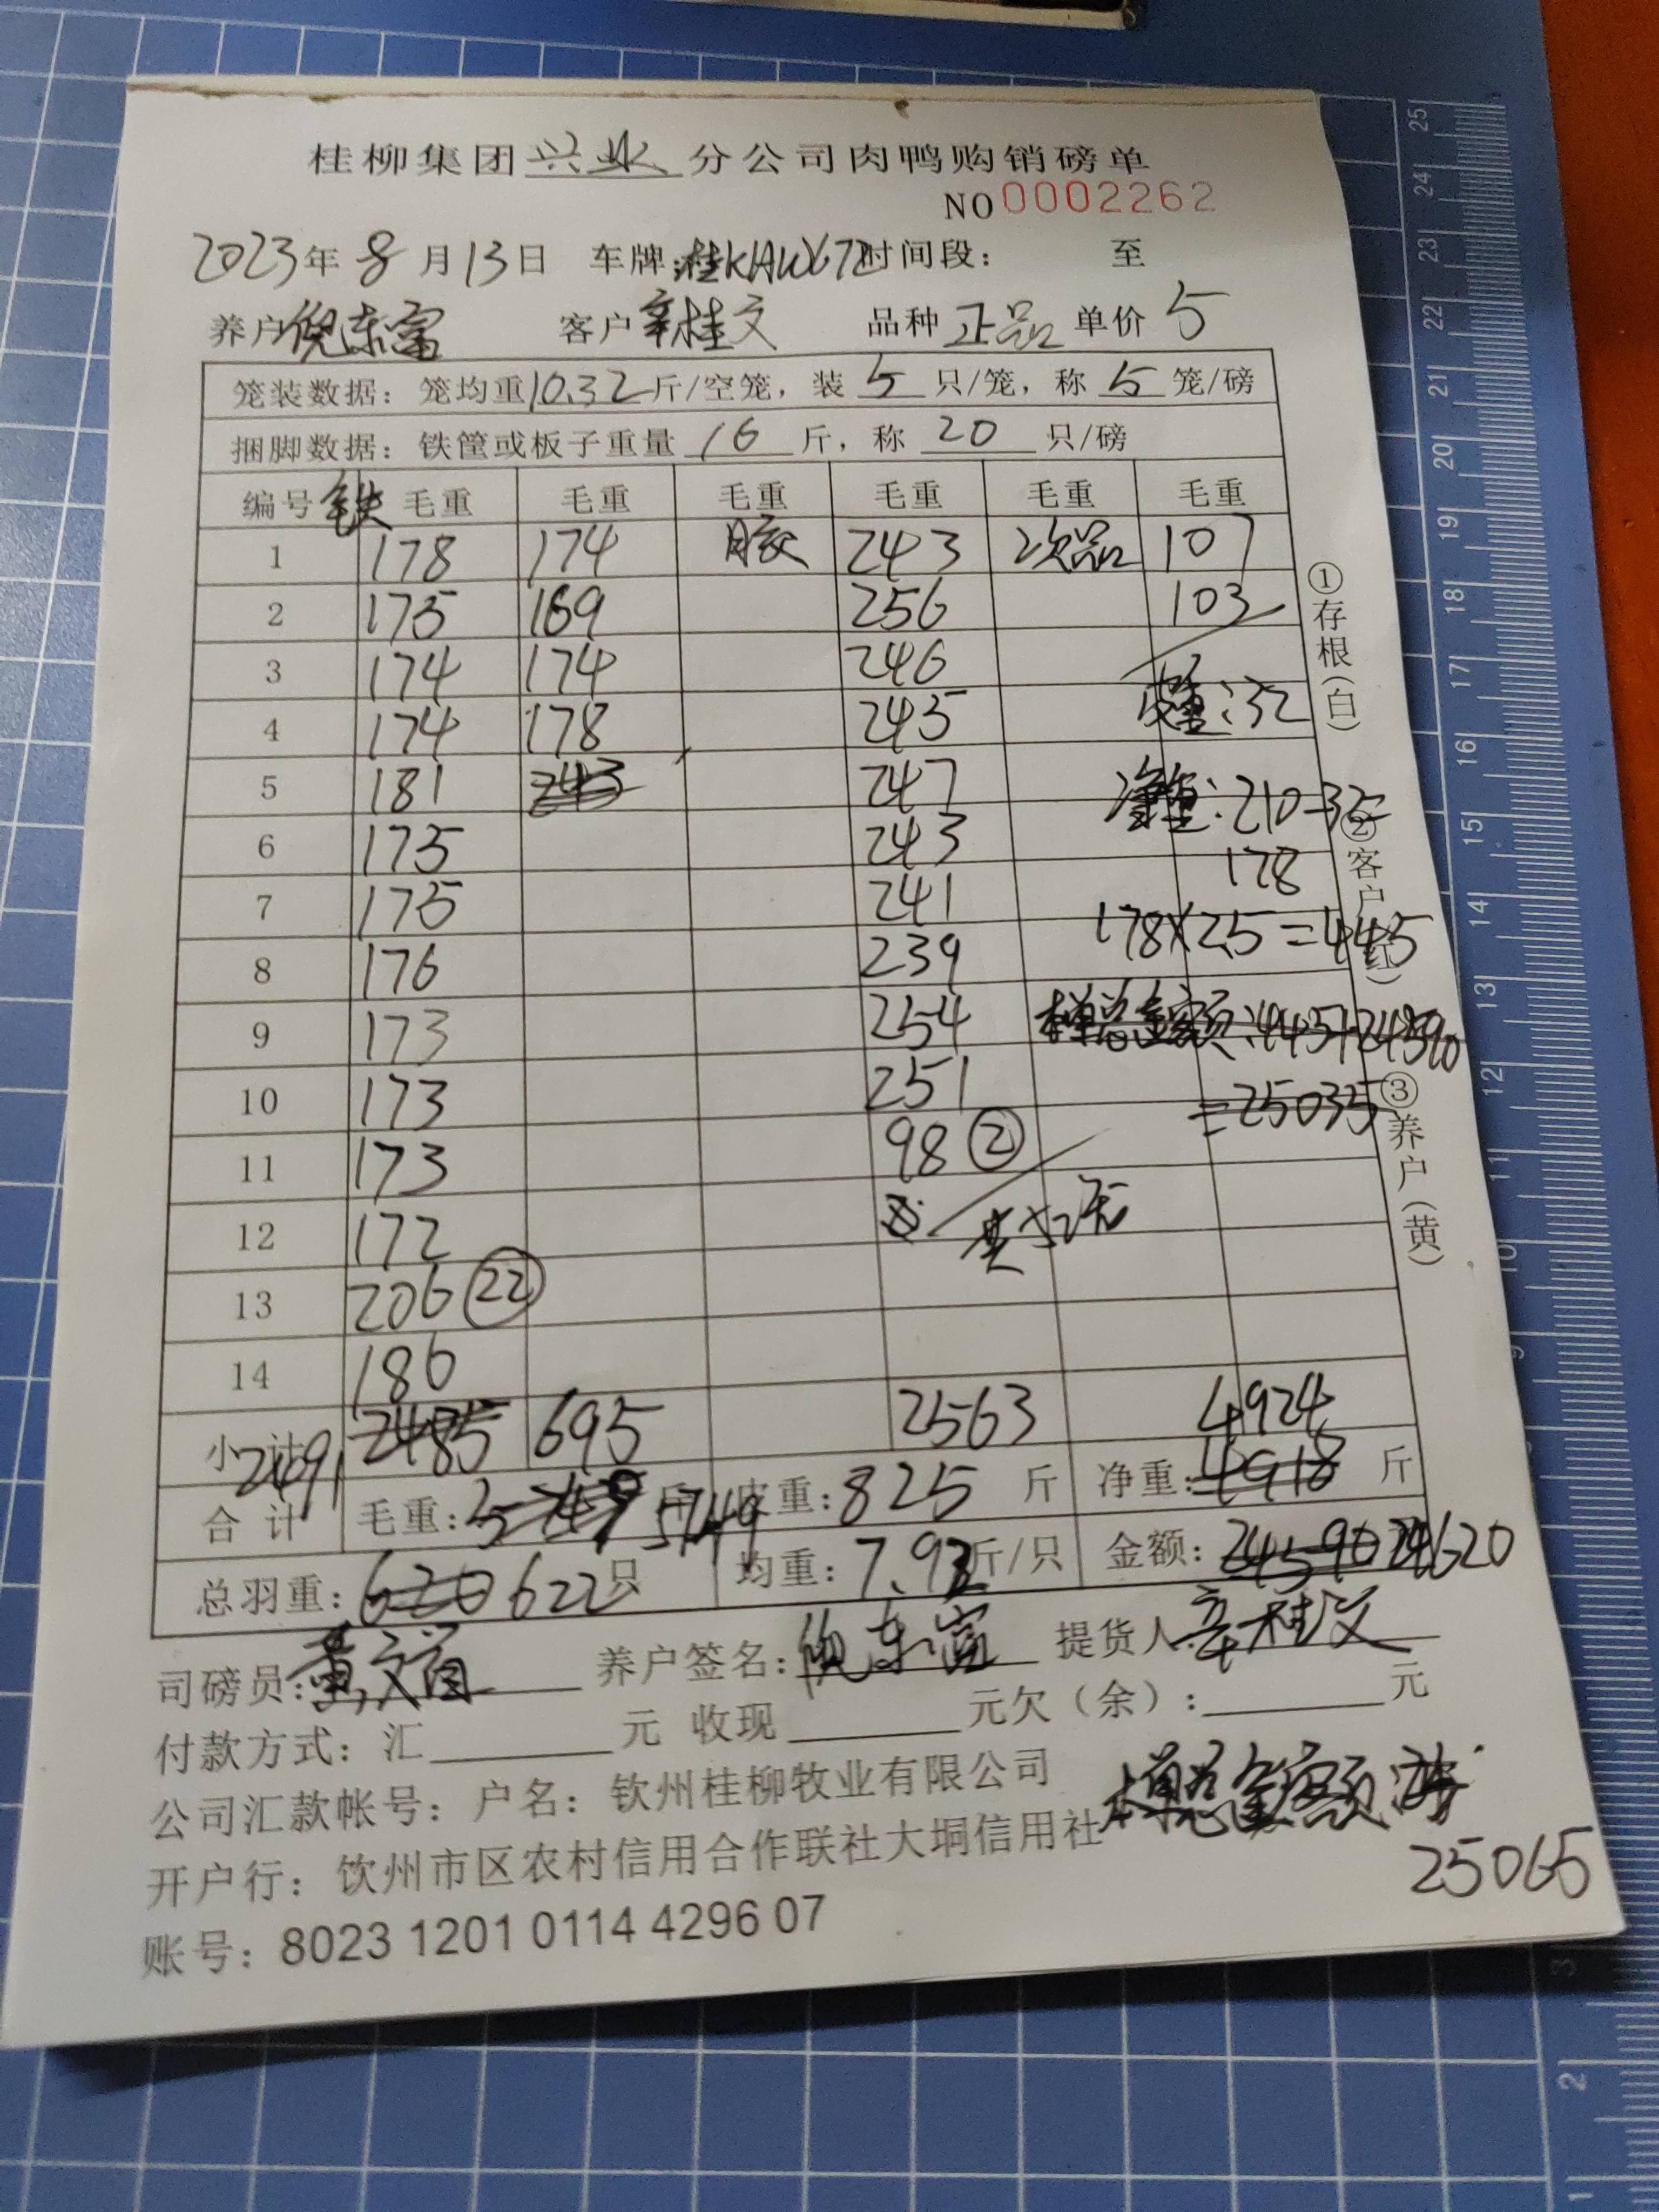 桂柳集团兴业分公司肉鸭购销磅单
NO 0002262
2023年8月13日 车牌:桂KHW672 时间段: 至
养户 倪东富 客户 辛桂文 品种 正品 单价 5
笼装数据: 笼均重10.32斤/空笼, 装 5 只/笼, 称 5 笼/磅
捆脚数据: 铁筐或板子重量 16 斤, 称 20 只/磅
编号 铁 毛重 毛重 毛重 毛重 毛重 毛重
1 178 174 胶 243 次品 107
2 175 169 256 103
3 174 174 246
4 174 178 245 皮重:32
5 181 243 247 净重:210-32=
6 175 243 178
7 175 241 178×2.5=445
8 176 239
9 173 254 本单总金额:445+24590
10 173 251 =25035
11 173 98 ②
12 172
13 206 (22)
14 186
小计 2485 2491 695 2563 4924
合计 毛重: 5749 斤 皮重: 825 斤 净重: 4918 斤
总羽重: 620 622只 均重: 7.92斤/只 金额: 24590 24620
司磅员: 养户签名: 倪东富 提货人 辛桂文
付款方式: 汇 元 收现 元欠(余): 元
公司汇款帐号: 户名: 钦州桂柳牧业有限公司
本单总金额
开户行: 饮州市区农村信用合作联社大垌信用社
25065
账号: 8023 1201 0114 4296 07
①存根(白)
②客户(红)
③养户(黄)